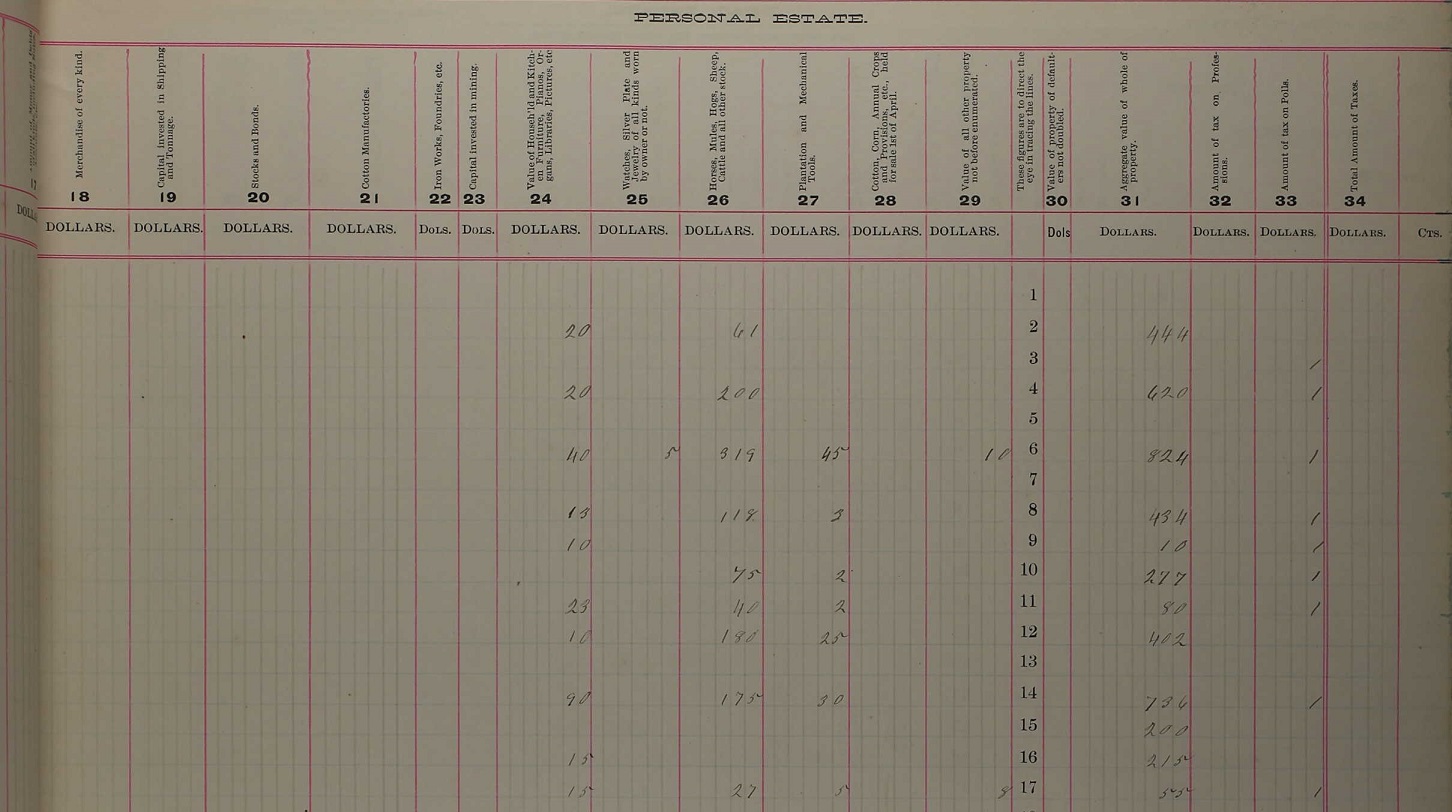 PERSONAL ESTATE.
Merchandise of every kind.
Capital invested in Shipping and Tonnage.
Stocks and Bonds.
Cotton Manufactories.
Iron Works, Foundries, etc.
Capital invested in mining.
Value of Househ'ld and Kitch-
en Furniture, Pianos, Or-
gans, Libraries, Pictures, etc
Watches, Silver Plate and
Jewelry of all kinds worn
by owner or not.
Horses, Mules, Hogs, Sheep,
Cattle and all other stock.
Plantation and Mechanical
Tools.
Cotton, Corn, Annual Crops
and Provisions, etc., held
for sale 1st of April.
Value of all other property
not before enumerated.
These figures are to direct the
eye in tracing the lines.
Value of property of default-
ers not doubled.
Aggregate value of whole of
property.
Amount of tax on Profes-
sions.
Amount of tax on Polls.
Total Amount of Taxes.
17 18 19 20 21 22 23 24 25 26 27 28 29 30 31 32 33 34
DOLLARS. DOLLARS. DOLLARS. DOLLARS. DOLS. DOLS. DOLLARS. DOLLARS. DOLLARS. DOLLARS. DOLLARS. DOLLARS. Dols DOLLARS. DOLLARS. DOLLARS. DOLLARS. CTS.
1
20 61 2 444
3 1
20 200 4 620 1
5
40 5 319 45 10 6 824 1
7
13 118 3 8 434 1
10 9 10 1
75 2 10 277 1
23 40 2 11 80 1
10 180 25 12 402
13
90 175 30 14 736 1
15 200
15 16 215
15 27 5 8 17 55 1